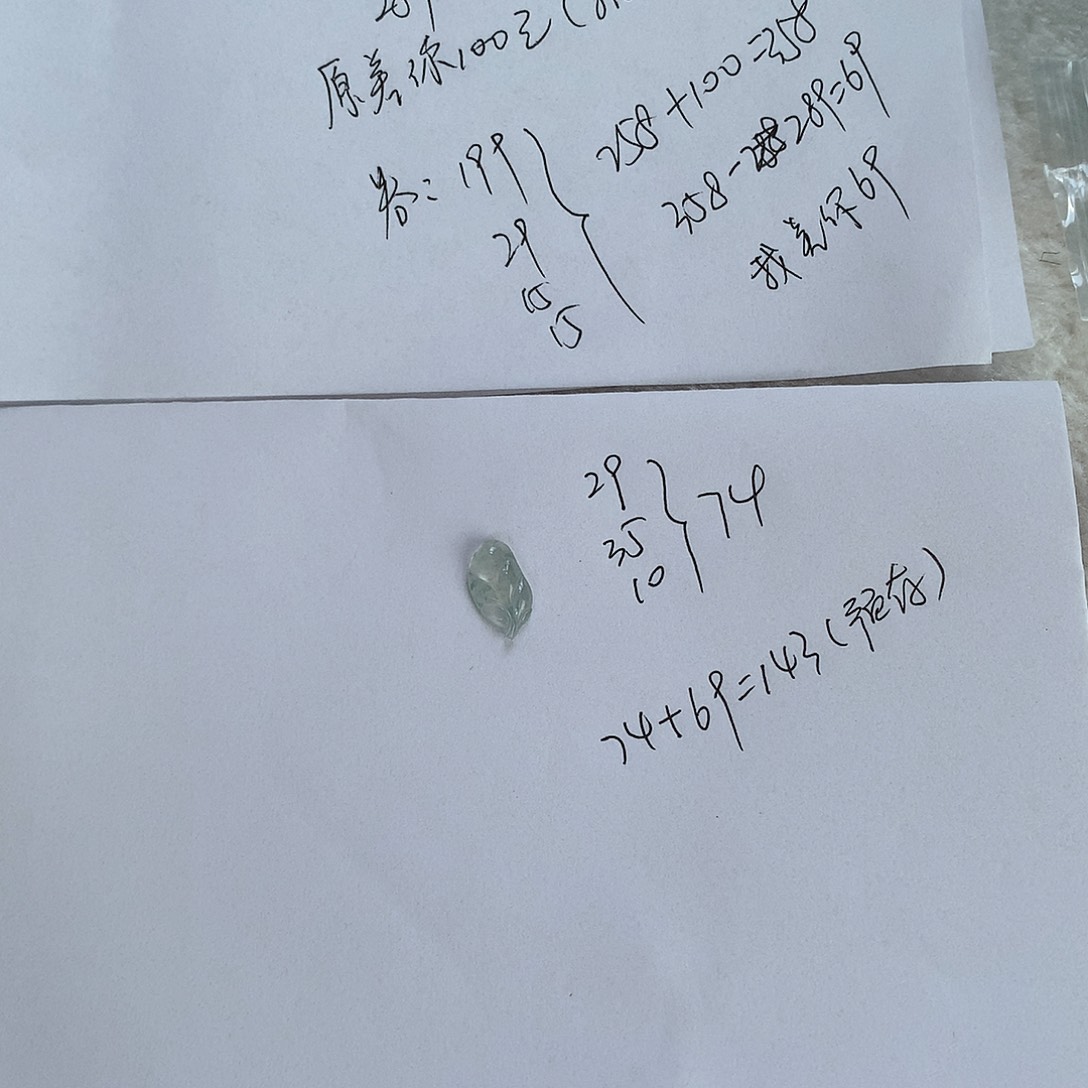 289
原差你100元(
券:199
29
15
15
258+100=358
358-289=69
我差你69
29
35
10
74
74+69=143(预存)